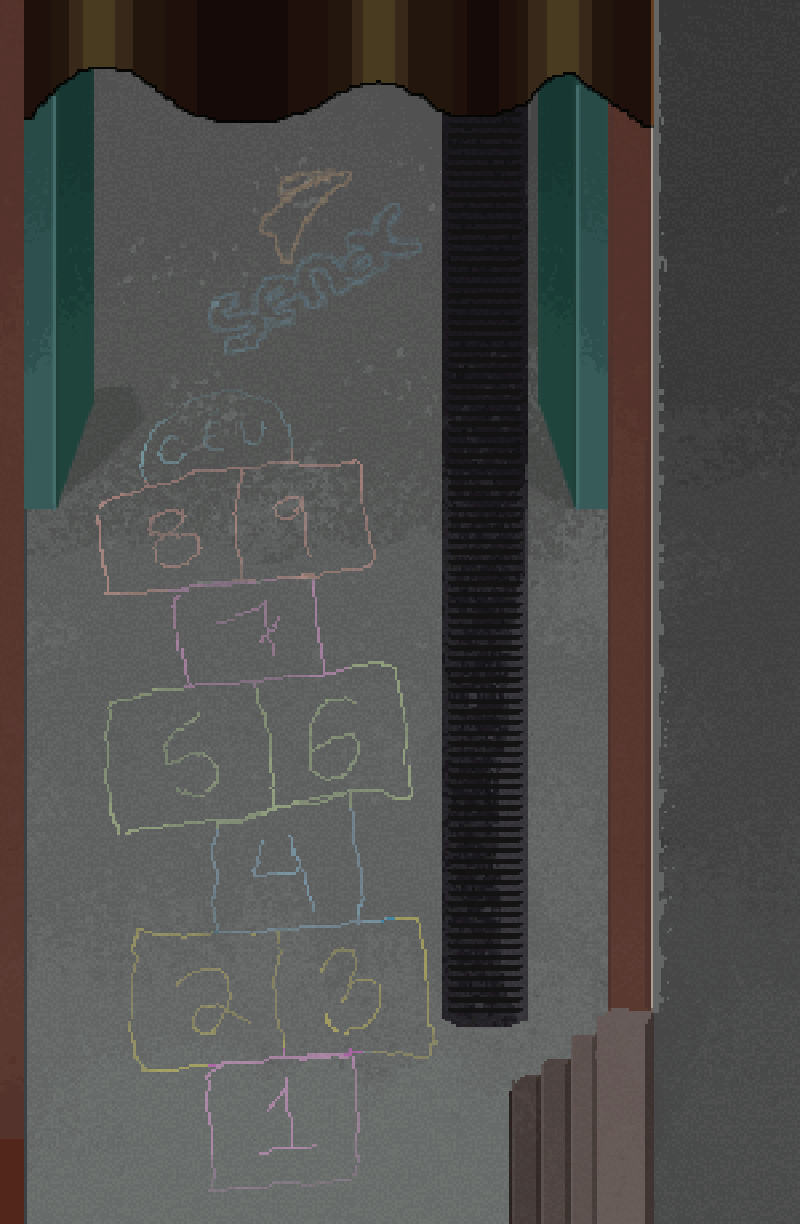 senac
CEU
8 9
7
5 6
4
2 3
1